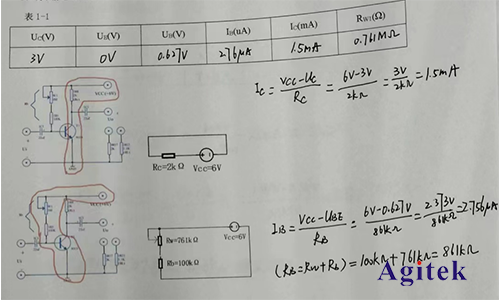 表 1-1
UC(V) UE(V) UB(V) IB(uA) IC(mA) RW1(Ω)
3V 0V 0.627V 2.76μA 1.5mA 0.761MΩ
IC = VCC-UC / RC = 6V-3V / 2kΩ = 3V / 2kΩ = 1.5mA
Rc=2k Ω Vcc=6V
Rw=761k Ω
Rb=100k Ω
Vcc=6V
IB = VCC-UBE / RB = 6V-0.627V / 861kΩ = 2.373V / 861kΩ = 2.756μA
(RB=RW+Rb) = 100kΩ+761kΩ = 861kΩ
Agitek